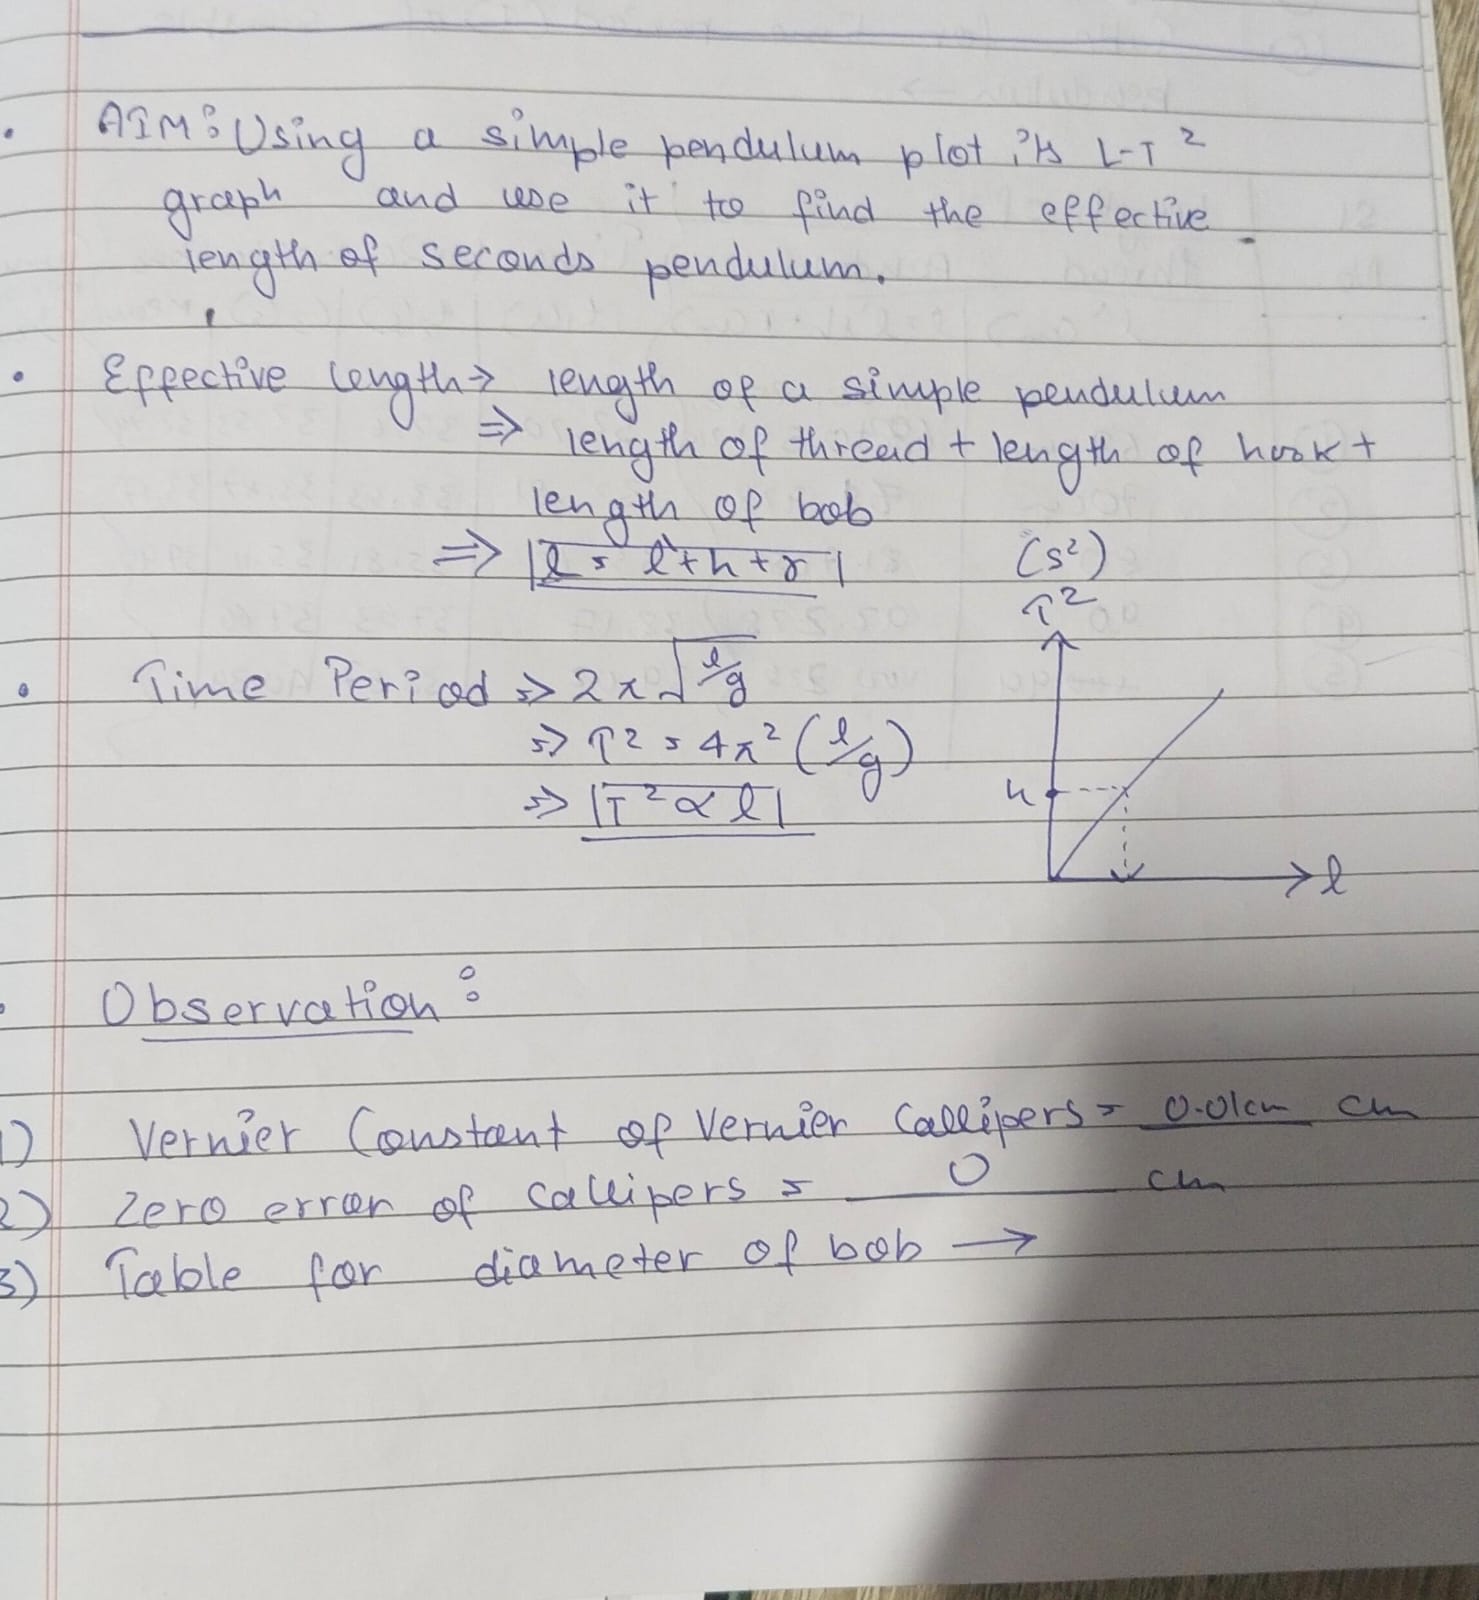 AIM: Using a simple pendulum plot it's L-T²
graph and use it to find the effective
length of seconds pendulum.
Effective length → length of a simple pendulum
⇒ length of thread + length of hook +
length of bob
⇒ l = l' + h + r
(s²)
T²
Time Period ⇒ 2π√l/g
⇒ T² = 4π² (l/g)
⇒ T² ∝ l
4
l
Observation :
1) Vernier Constant of Vernier Callipers = 0.01cm cm
2) Zero error of callipers = 0 cm
3) Table for diameter of bob →